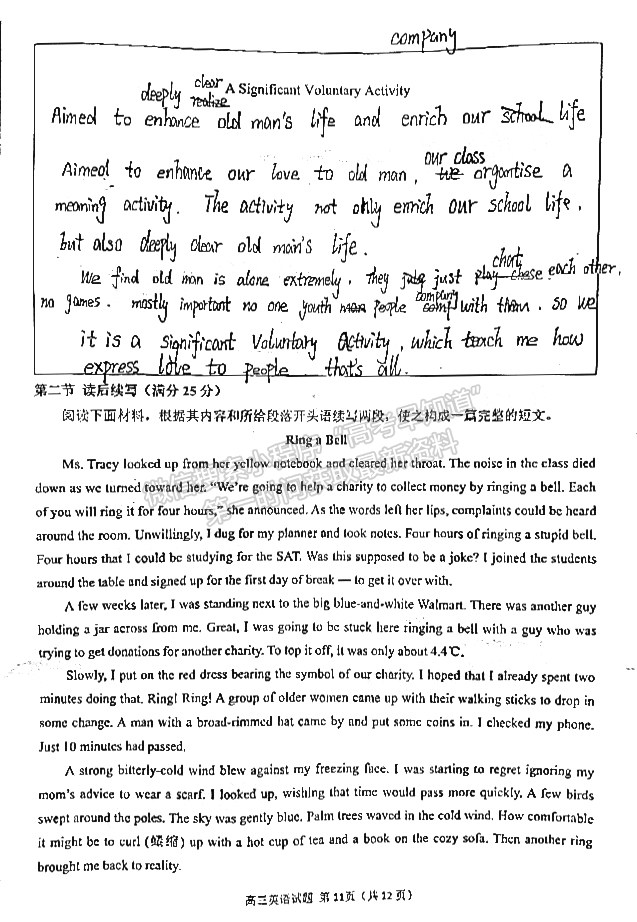 company
deeply clear A Significant Voluntary Activity
realize
Aimed to enhance old man's life and enrich our school life
our class
Aimed to enhance our love to old man, we organtise a
meaning activity. The activity not only enrich our school life,
but also deeply clear old man's life.
chat
We find old man is alone extremely. They just play chese each other,
no games. mostly important no one youth man people company with them. so we
it is a significant Voluntary Activity, which teach me how
express love to people. that's all.
第二节 读后续写（满分 25 分）
阅读下面材料，根据其内容和所给段落开头语续写两段，使之构成一篇完整的短文。
Ring a Bell
Ms. Tracy looked up from her yellow notebook and cleared her throat. The noise in the class died
down as we turned toward her. “We're going to help a charity to collect money by ringing a bell. Each
of you will ring it for four hours,” she announced. As the words left her lips, complaints could be heard
around the room. Unwillingly, I dug for my planner and took notes. Four hours of ringing a stupid bell.
Four hours that I could be studying for the SAT. Was this supposed to be a joke? I joined the students
around the table and signed up for the first day of break — to get it over with.
A few weeks later, I was standing next to the big blue-and-white Walmart. There was another guy
holding a jar across from me. Great, I was going to be stuck here ringing a bell with a guy who was
trying to get donations for another charity. To top it off, it was only about 4.4℃.
Slowly, I put on the red dress bearing the symbol of our charity. I hoped that I already spent two
minutes doing that. Ring! Ring! A group of older women came up with their walking sticks to drop in
some change. A man with a broad-rimmed hat came by and put some coins in. I checked my phone.
Just 10 minutes had passed.
A strong bitterly-cold wind blew against my freezing face. I was starting to regret ignoring my
mom's advice to wear a scarf. I looked up, wishing that time would pass more quickly. A few birds
swept around the poles. The sky was gently blue. Palm trees waved in the cold wind. How comfortable
it might be to curl (蜷缩) up with a hot cup of tea and a book on the cozy sofa. Then another ring
brought me back to reality.
微信搜索小程序“高考早知道”
第一时间获取最新资料
高三英语试题 第 11页（共 12 页）